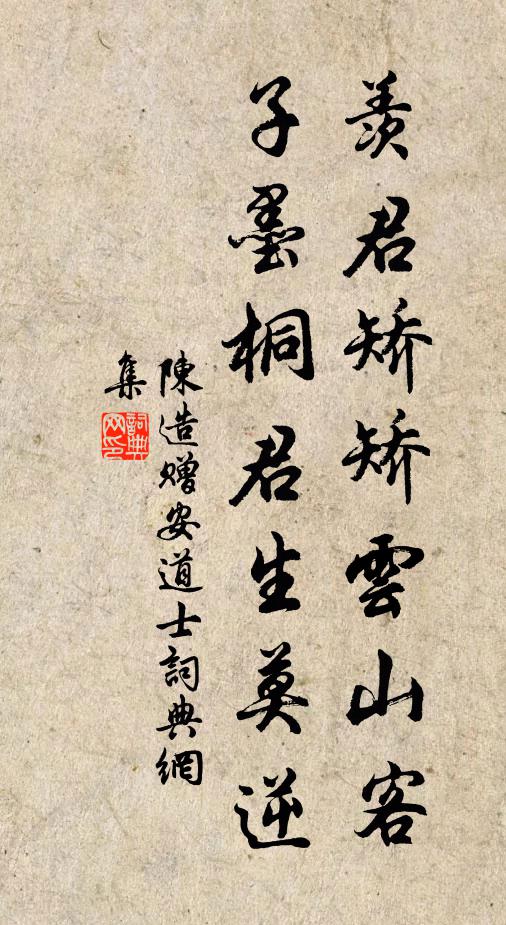 羨君矯矯雲山客
子墨桐君生莫逆
陳造贈安道士詞典網
集
詞典
网印